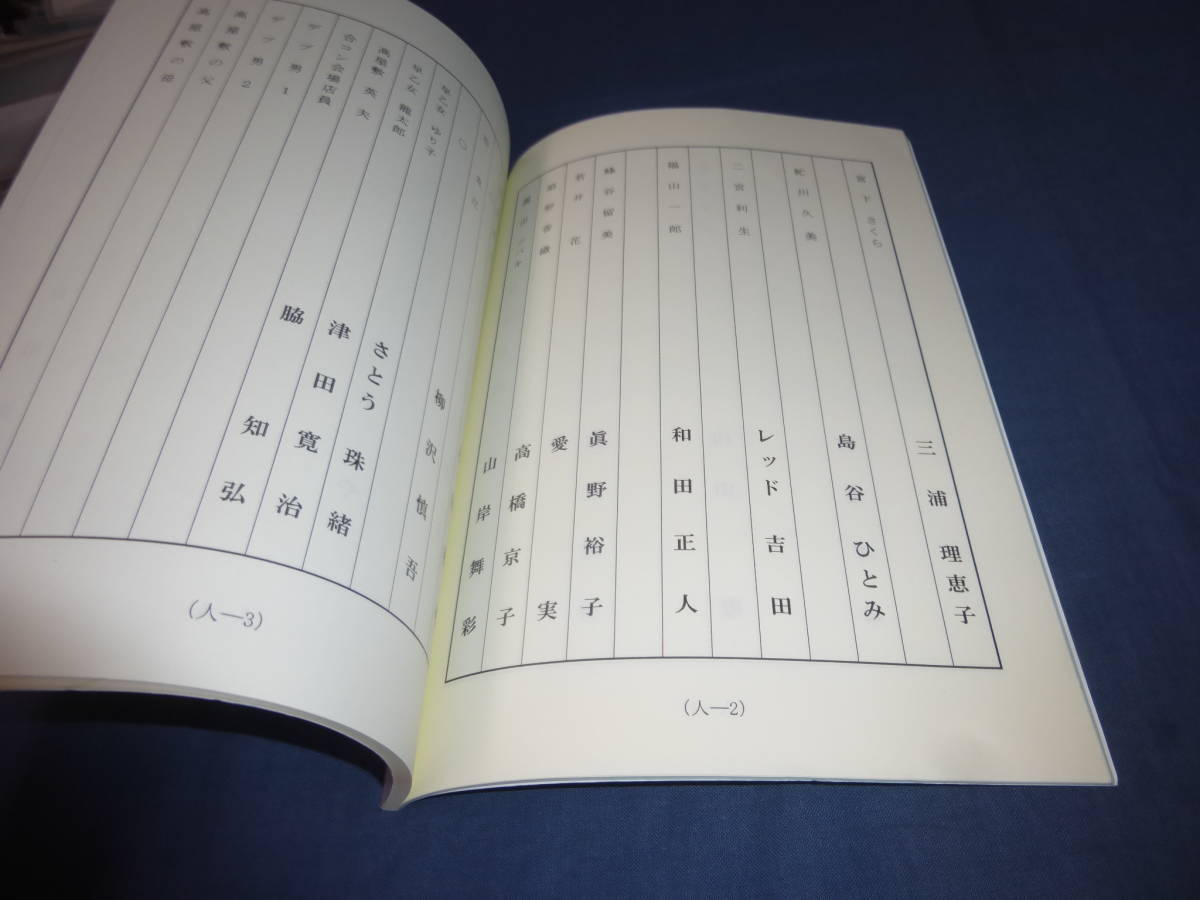 宮下さくら 三浦理恵子
蛇川久美 島谷ひとみ
レッド吉田
二宮利生
福山一郎 和田正人
蜂谷留美 眞野裕子
若井花 愛実
香織 高橋京子
山岸舞彩
(人—2)
柳沢慎吾
早乙女ゆり子 さとう珠緒
早乙女龍太郎 津田寛治
高屋敷英夫 脇知弘
合コン会場店員
デブ男1
デブ男2
高屋敷の父
高屋敷の母
(人—3)